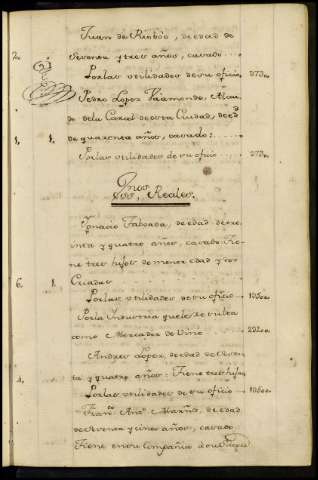 Juan de Riobóo, de edad de
2. Sesenta y tres años, casado . . .
Por las utilidades de su oficio 073..
Pedro Lopez Vaamonde, Alcai
de de la Carcel de esta Ciudad, de edd
1. 1. de quarenta años, casado: . . .
Por las utilidades de su oficio 073..
Reales.
Ignacio Taboada, de edad de
y quatro años, casado Tie
ne tres hijos de menor edad y dos
6. 1. Criadas
Por las utilidades de su oficio
Por la Industria que le resulta
como Mercader de Vino
Andres Lopez, de edad de
4. ta y quatro años: Tiene tres hijos
Por las utilidades de su oficio
Franco Anto Mariño, de edad
de y cinco años, casado
Tiene en su Compañia